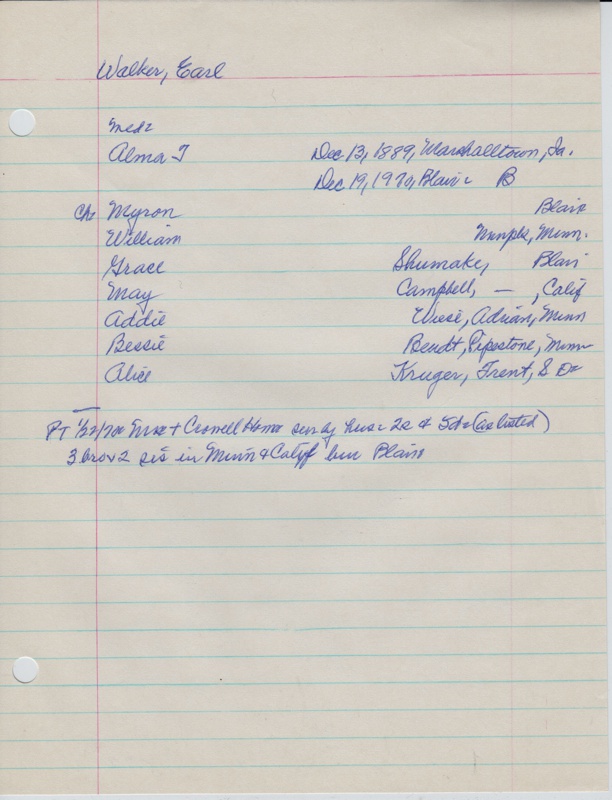 Walker, Earl
Alma T Dec 13, 1889, Marshalltown, Ia.
Dec 19, 1970, Blair B
Ch: Myron Blair
William Mnnpls, Minn.
Grace Shumake, Blair
May Campbell, — , Calif
Addie Wiese, Adrian, Minn
Bessie Bendt, Pipestone, Minn
Alice Kruger, Trent, S Da
PT Crowell Home surv by hus 2s & 5d (as listed)
3 bro & 2 sis in Minn & Calif bur Blair